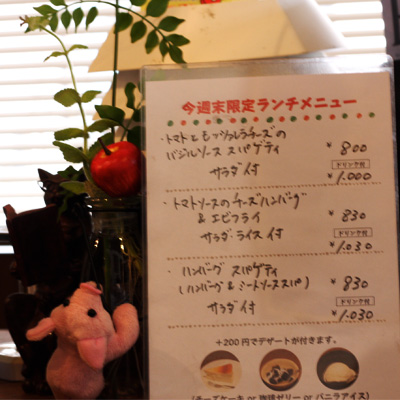 今週末限定ランチメニュー
・トマトとモッツァレラチーズの
バジルソース スパゲティ ¥800
サラダ付 ドリンク付 ¥1,000
・トマトソースのチーズハンバーグ
&エビフライ ¥830
サラダ・ライス付 ドリンク付 ¥1,030
・ハンバーグ スパゲティ
(ハンバーグ&ミートソーススパ) ¥830
サラダ付 ドリンク付 ¥1,030
+200円でデザートが付きます。
(チーズケーキ or 珈琲ゼリー or バニラアイス)